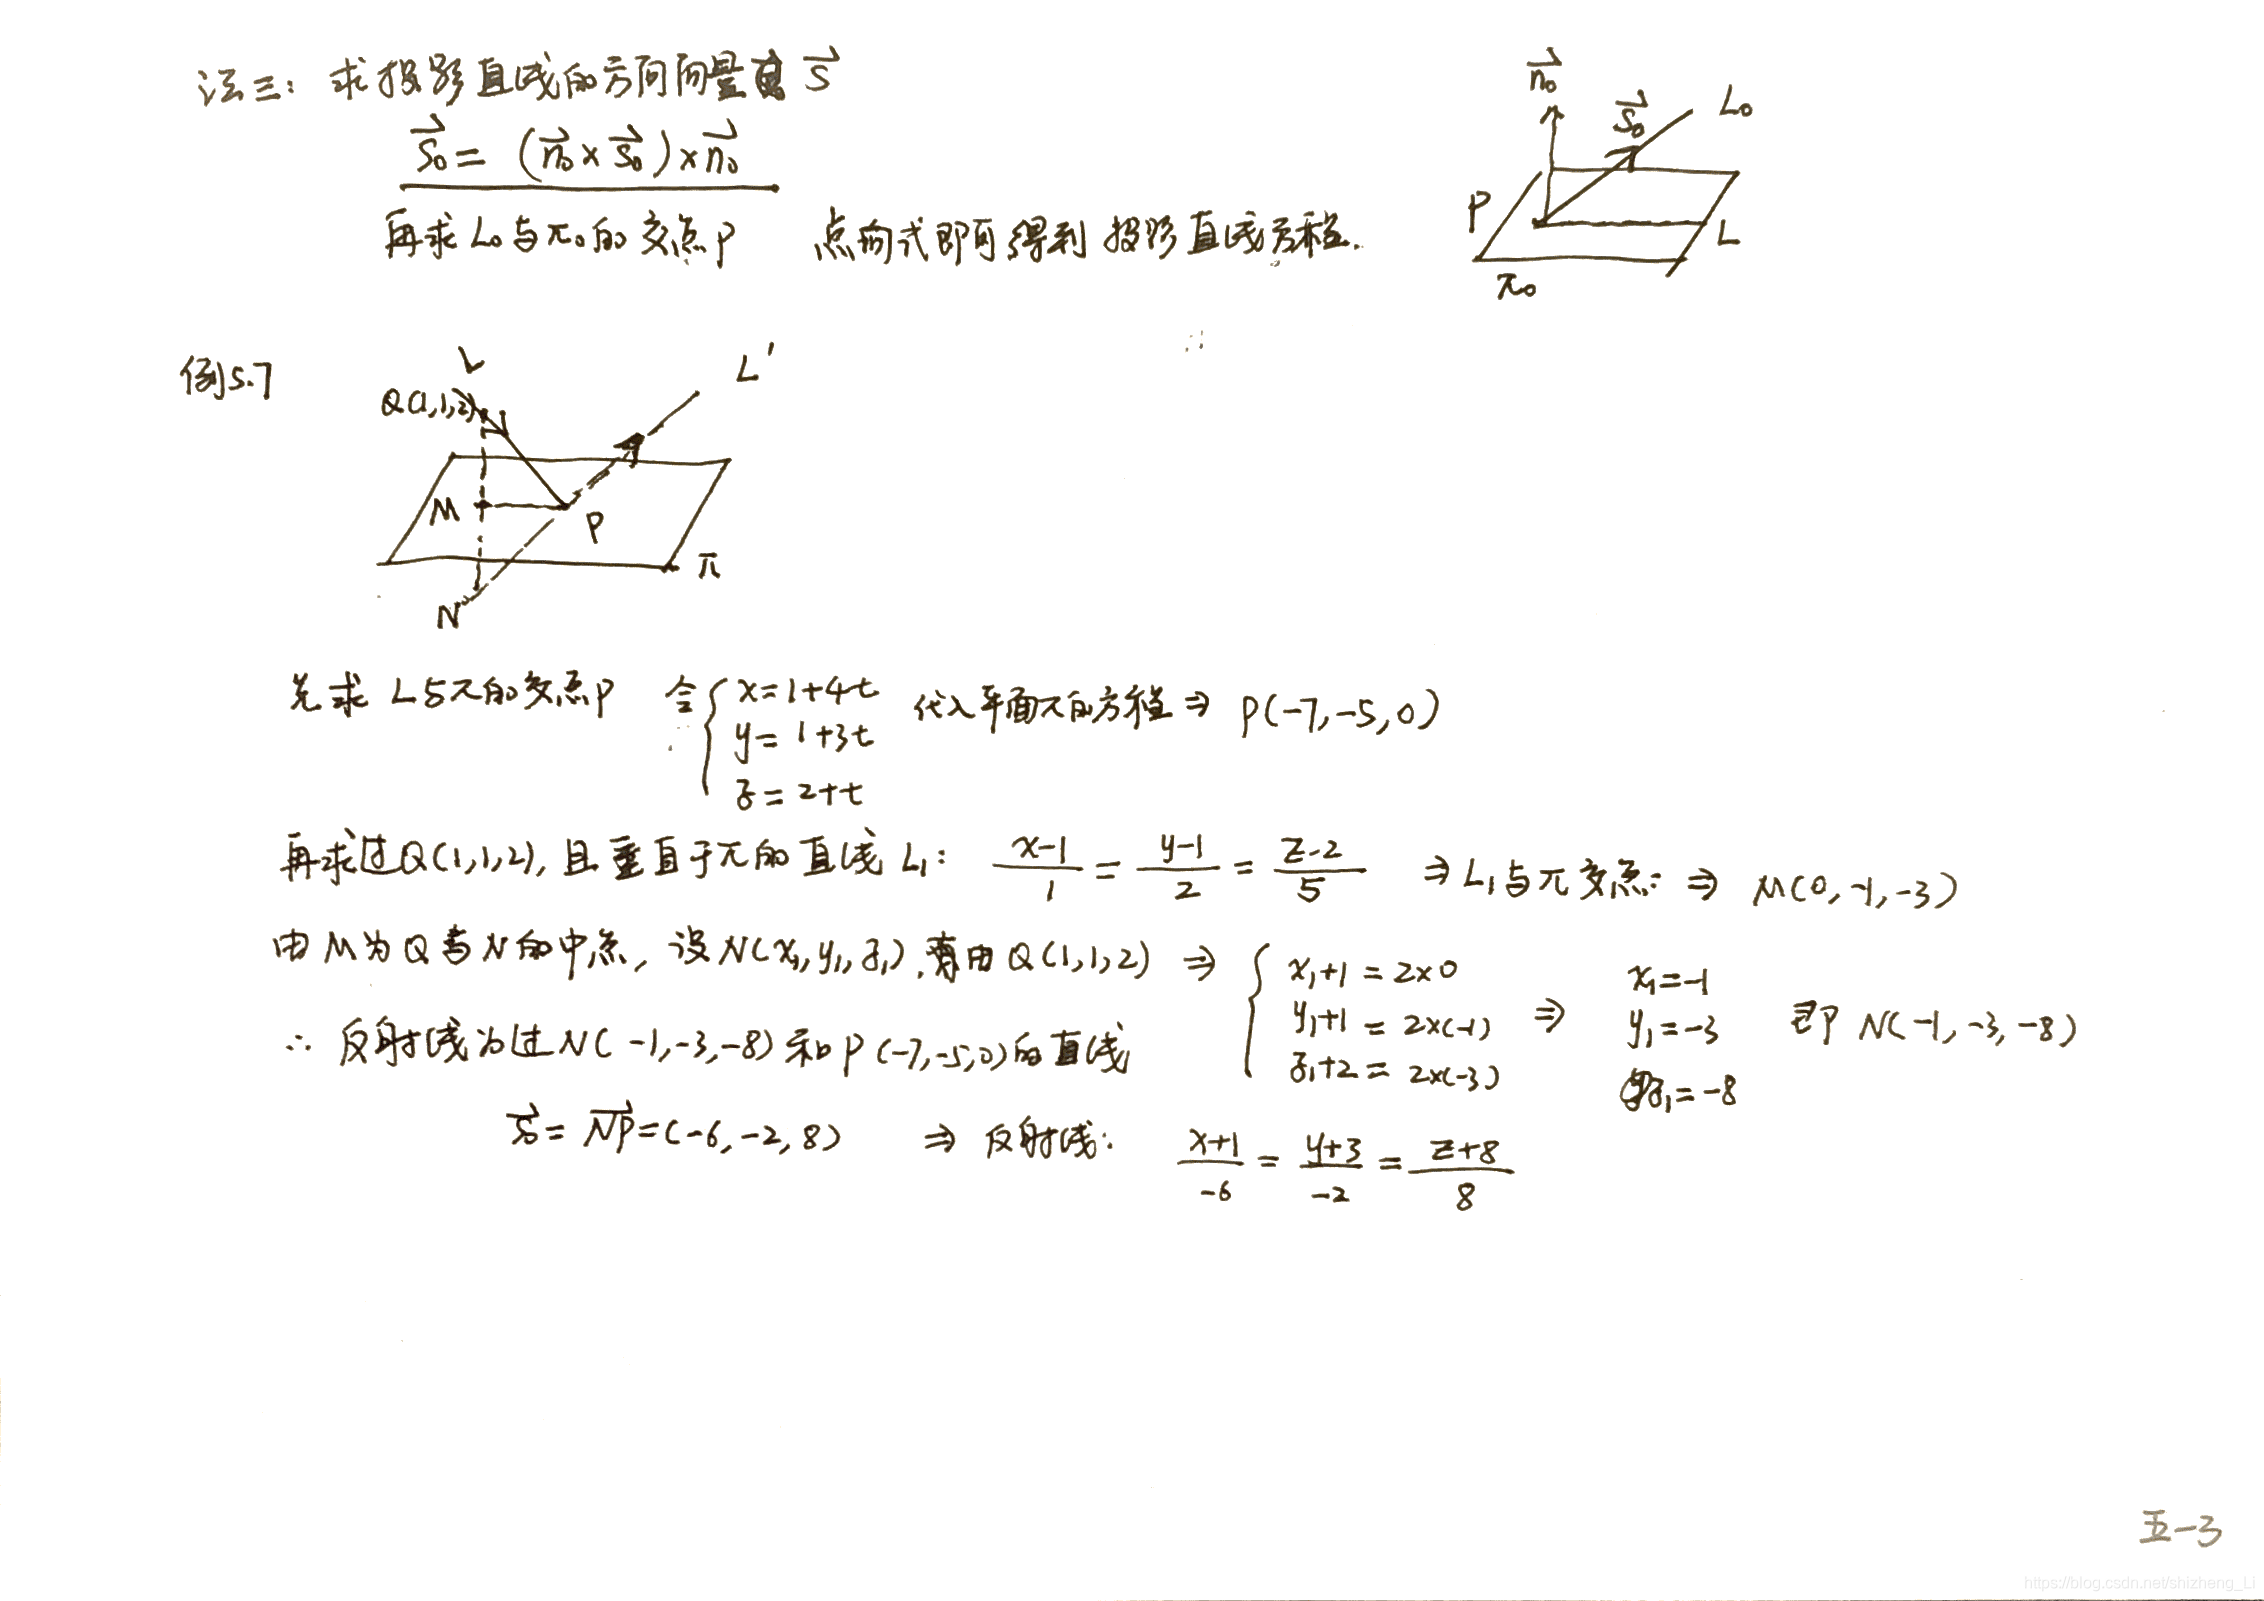 法三: 求投影直线的方向向量 s⃗
s⃗₀ = (n⃗₀ × s⃗₀) × n⃗₀
再求 L₀ 与 π₀ 的交点 P 点向式即可得到投影直线方程.
n⃗₀
s⃗₀
L₀
P
L
π₀
例5.7
L
L'
Q(1,1,2)
M
P
π
N
先求 L与π的交点P 令 { x=1+4t 代入平面π的方程 ⇒ P(-7,-5,0)
y=1+3t
z=2+t
再求过Q(1,1,2), 且垂直于π的直线 L₁: (x-1)/1 = (y-1)/2 = (z-2)/5 ⇒ L₁与π交点: ⇒ M(0,-1,-3)
由M为Q与N的中点, 设N(x₁,y₁,z₁), 由Q(1,1,2) ⇒ { x₁+1=2×0 x₁=-1
y₁+1=2×(-1) ⇒ y₁=-3 即 N(-1,-3,-8)
z₁+2=2×(-3) z₁=-8
∴ 反射线为过N(-1,-3,-8)和P(-7,-5,0)的直线
s⃗ = NP⃗ = (-6,-2,8) ⇒ 反射线: (x+1)/-6 = (y+3)/-2 = (z+8)/8
五-3
https://blog.csdn.net/shizheng_Li